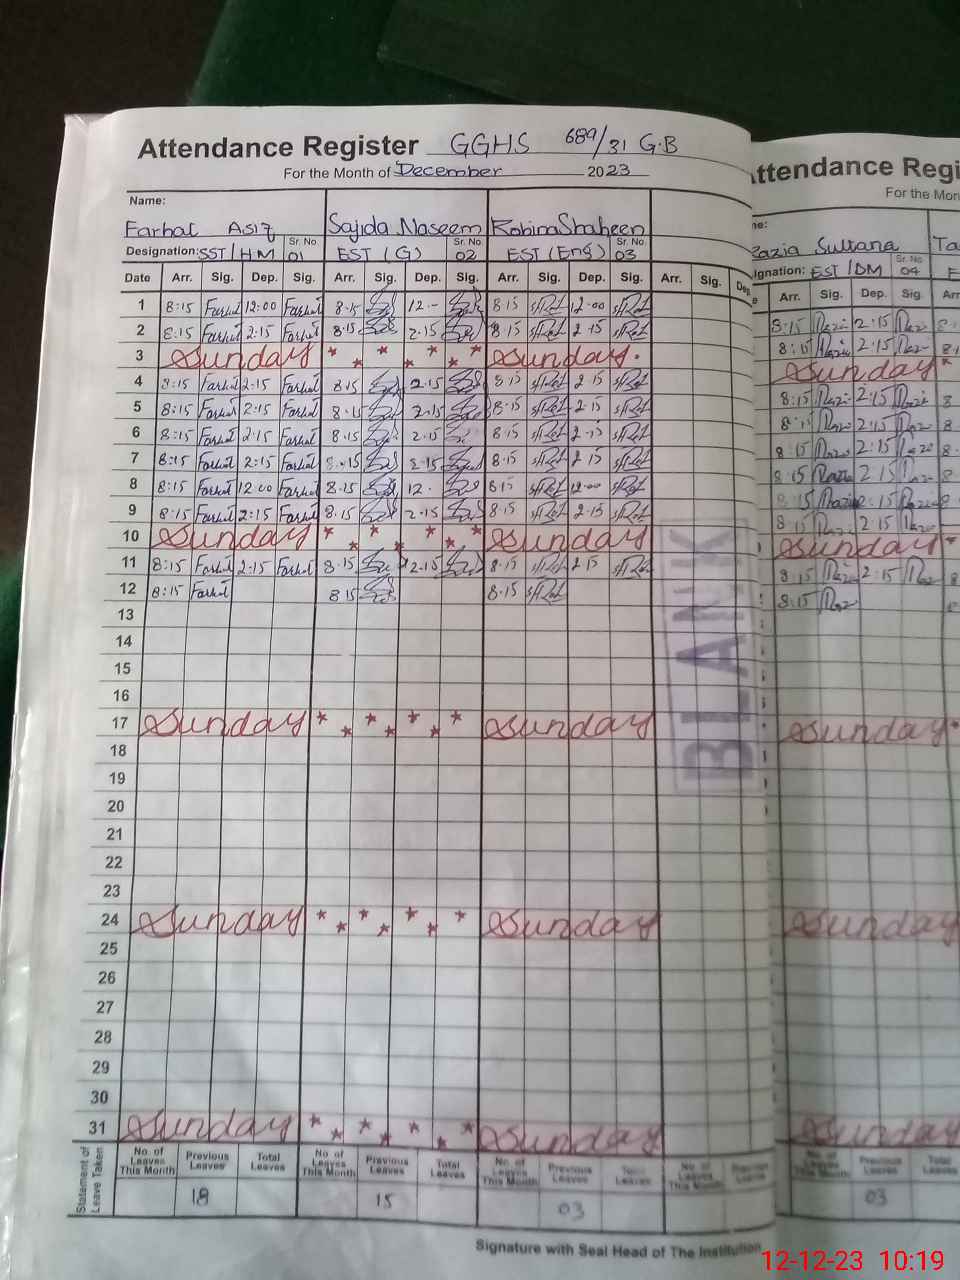 Attendance Register GGHS 689/31 G.B
For the Month of December 2023
Name:
Farhat Asiz Sajida Naseem Robina Shaheen
Designation: SST/HM Sr. No. 01 EST (G) Sr. No. 02 EST (Eng) Sr. No. 03
Date Arr. Sig. Dep. Sig. Arr. Sig. Dep. Sig. Arr. Sig. Dep. Sig. Arr. Sig. Dep
1 8:15 Farhat 12:00 Farhat 8.15 12.- 8.15 12.00
2 8:15 Farhat 2:15 Farhat 8.15 2.15 8.15 2.15
3 Sunday * * * * * * Sunday.
4 8:15 Farhat 2:15 Farhat 8.15 2.15 8.15 2.15
5 8:15 Farhat 2:15 Farhat 8.15 2.15 8.15 2.15
6 8:15 Farhat 2:15 Farhat 8.15 2.15 8.15 2.15
7 8:15 Farhat 2:15 Farhat 8.15 2.15 8.15 2.15
8 8:15 Farhat 12:00 Farhat 8.15 12. 8.15 12.00
9 8:15 Farhat 2:15 Farhat 8.15 2.15 8.15 2.15
10 Sunday * * * * * * Sunday
11 8:15 Farhat 2:15 Farhat 8.15 2.15 8.15 2.15
12 8:15 Farhat 8.15 8.15
13
14
15
16
17 Sunday * * * * * * * Sunday
18
19
20
21
22
23
24 Sunday * * * * * * Sunday
25
26
27
28
29
30
31 Sunday * * * * * * * Sunday
BLANK
Statement of Leave Taken
No. of Leaves This Month Previous Leaves Total Leaves No. of Leaves This Month Previous Leaves Total Leaves No. of Leaves This Month Previous Leaves Total Leaves No. of Leaves This Month Previous Leaves
18 15 03
Signature with Seal Head of The Institution
Attendance Regi
For the Mon
Razia Sultana Ta
EST/DM Sr. No. 04
Arr. Sig. Dep. Sig. Arr
8:15 2:15
8:15 2:15
Sunday *
8:15 2:15
8:15 2:15
8:15 2:15
8:15 2:15
8:15 2:15
8:15 2:15
Sunday *
8:15 2:15
8:15
Sunday *
Sunday
Sunday
No. of Leaves This Month Previous Leaves Total
03
12-12-23 10:19